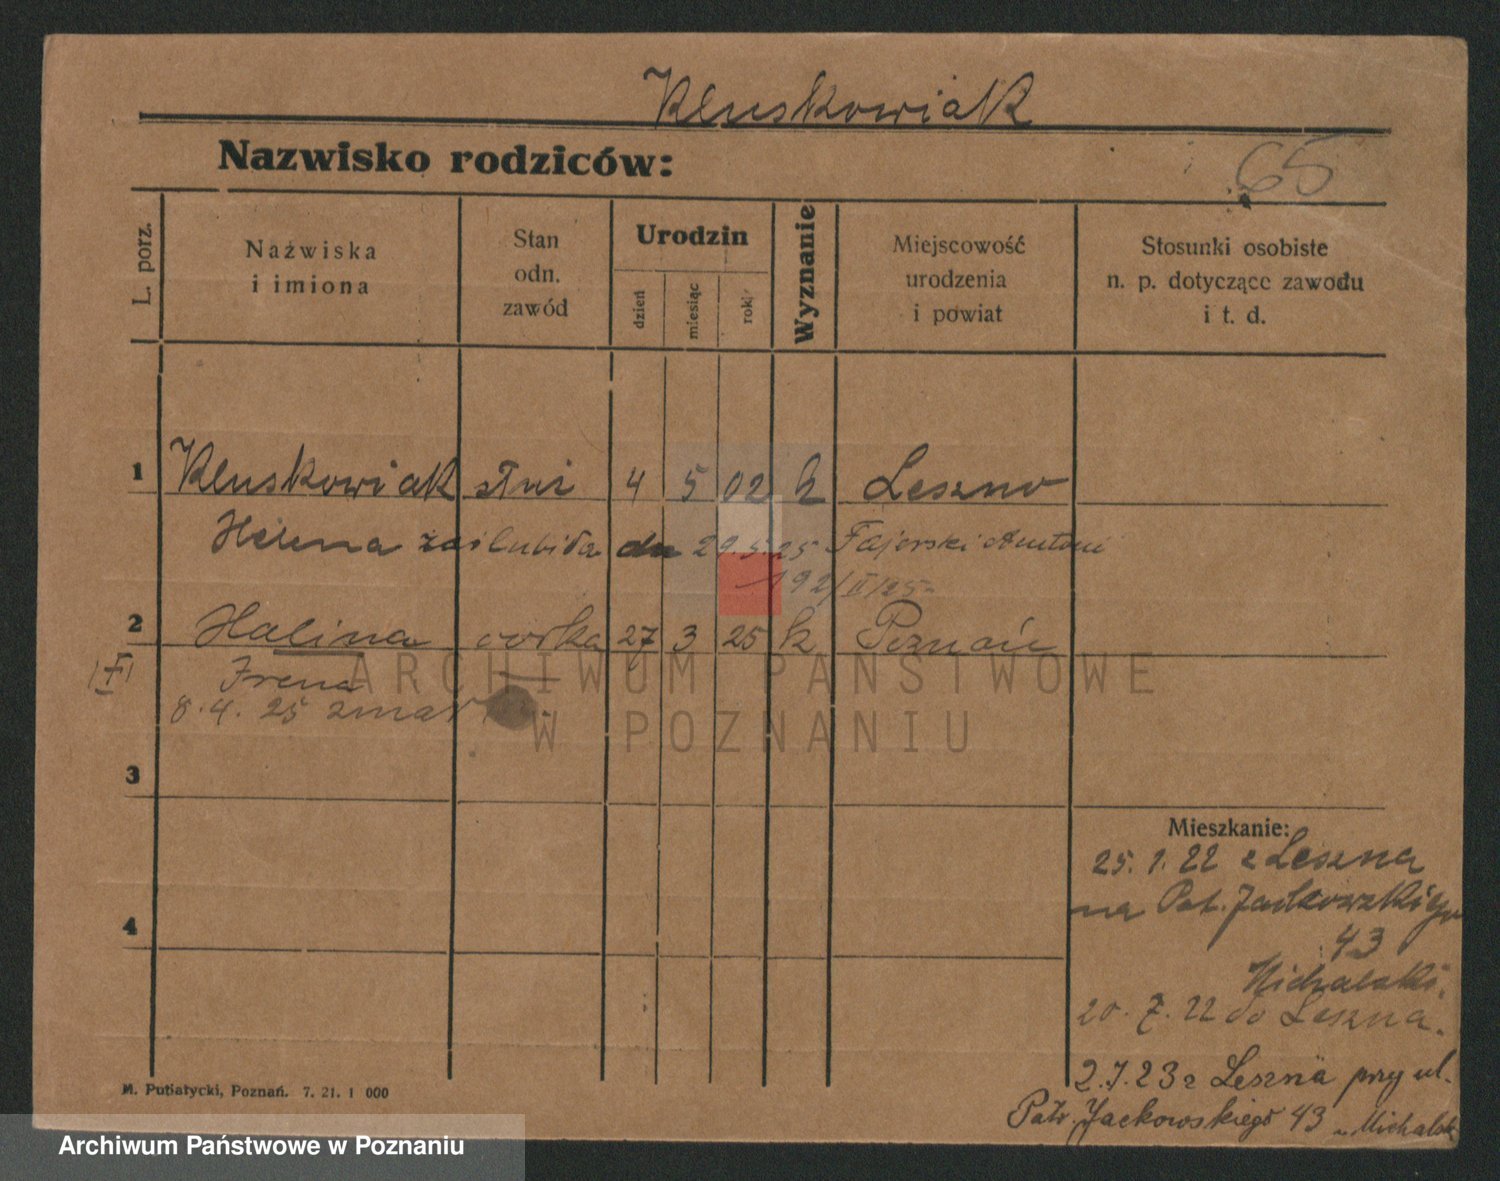 Kluskowiak
Nazwisko rodziców:
65
L. porz.
Nazwiska
i imiona
Stan
odn.
zawód
Urodzin
dzień
miesiąc
rok
Wyznanie
Miejscowość
urodzenia
i powiat
Stosunki osobiste
n. p. dotyczące zawodu
i t. d.
1 Kluskowiak służ 4 5 02 k Leszno
Helena zaślubiła dn 29.5.25 Fajerski Antoni
192/II/25
2 Halina córka 27 3 25 k Poznań
Irena
8.4.25 zmar
ARCHIWUM PAŃSTWOWE
W POZNANIU
3
4
Mieszkanie:
25.1.22 z Leszna
na Pat. Jackowskiego
43
Michalski.
20.7.22 do Leszna.
2.1.23 z Leszna przy ul.
Patr. Jackowskiego 43 u Michalsk
M. Putiatycki, Poznań. 7. 21. 1 000
Archiwum Państwowe w Poznaniu